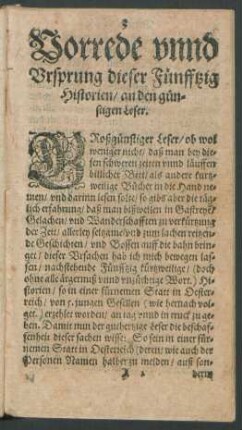 Vorrede vnnd
Vrsprung dieser Fünfftzig
Historien/ an den gün-
stigen Leser.
GRoßgünstiger Leser/ ob wol
weniger nicht/ daß man bey die-
sen schweren zeiten vnnd läufften
billicher Bett/ als andere kurtz-
weilige Bücher in die Hand ne-
men/ vnd darinn lesen solte/ so gibt aber die täg-
lich erfahrung/ daß man bißweilen in Gastreyen/
Gelachen/ vnd Wanderschafften zu verkürtzung
der Zeit/ allerley seltzame/ vnd zum lachen reitzen-
de Geschichten/ vnd Possen auff die bahn brin-
get/ dieser Vrsachen hab ich mich bewegen las-
sen/ nachstehende Fünfftzig kurtzweilige/ (doch
ohne alle ärgernuß vnnd vnzüchtige Wort.) Hi-
storien/ so in einer fürnemen Statt in Oester-
reich/ von 7. jungen Gesellen (wie hernach vol-
get) erzehlet worden/ an tag vnnd in truck zu ge-
ben. Damit nun der gutherzige Leser die beschaf-
fenheit dieser sachen wisse; So sein in einer für-
nemen Statt in Oesterreich (deren/ wie auch der
Personen Namen halber zu melden/ auß son-
A
dern